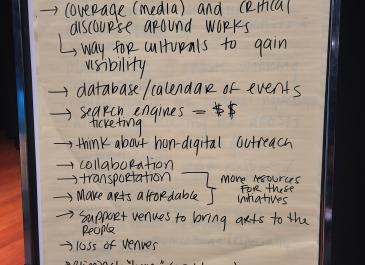 → coverage (media) and critical
discourse around works
↳ way for culturals to gain
visibility
→ database/calendar of events
→ search engines = $$
ticketing
→ think about non-digital outreach
→ collaboration
→ transportation
→ Make arts affordable
more resources
for these
initiatives
→ Support venues to bring arts to the
people
→ loss of venues